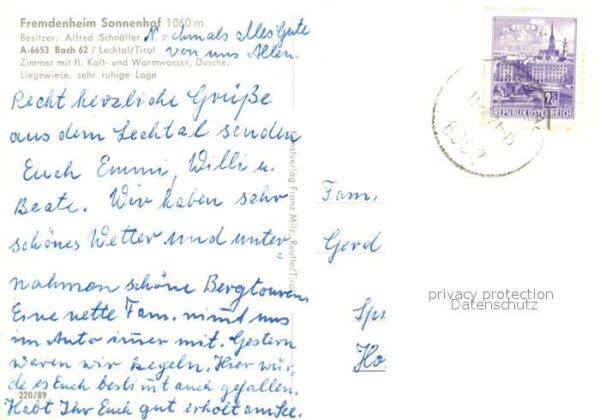 Fremdenheim Sonnenhof 1060 m
Besitzer: Alfred Schnöller
A-6653 Bach 62 / Lechtal/Tirol
Zimmer mit fl. Kalt- und Warmwasser, Dusche,
Liegewiese, sehr ruhige Lage
Nochmals alles Gute
von uns Allen.
Recht herzliche Grüße
aus dem Lechtal senden
Euch Emmi, Willi u.
Beate. Wir haben sehr
schönes Wetter und unter
nahmen schöne Bergtouren
Eine nette Fam. nimt uns
im Auto imer mit. Gestern
waren wir kegeln. Hier wür
de es Euch bestimt auch gefallen.
Habt Ihr Euch gut erholt am See.
220/89
Kunstverlag Franz Milz, Reutte/Tirol
Fam.
Gerd
Sp
Ho
2.50
REPUBLIK ÖSTERREICH
privacy protection
Datenschutz